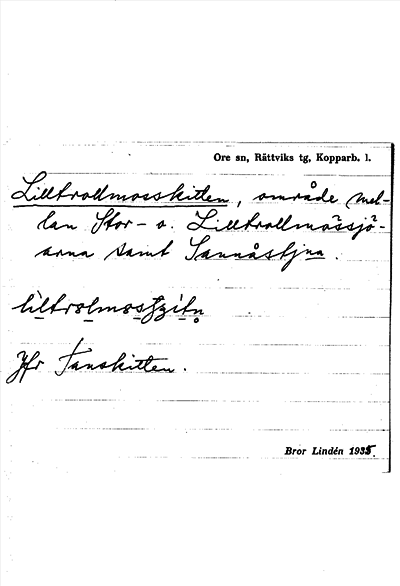 Ore sn, Rättviks tg, Kopparb. l.
Lilltrollmosskitten, område mel-
lan Stor- o. Lilltrollmossjö-
arna samt Sannåstjnn.
Jfr Tanskitten.
Bror Lindén 1935.